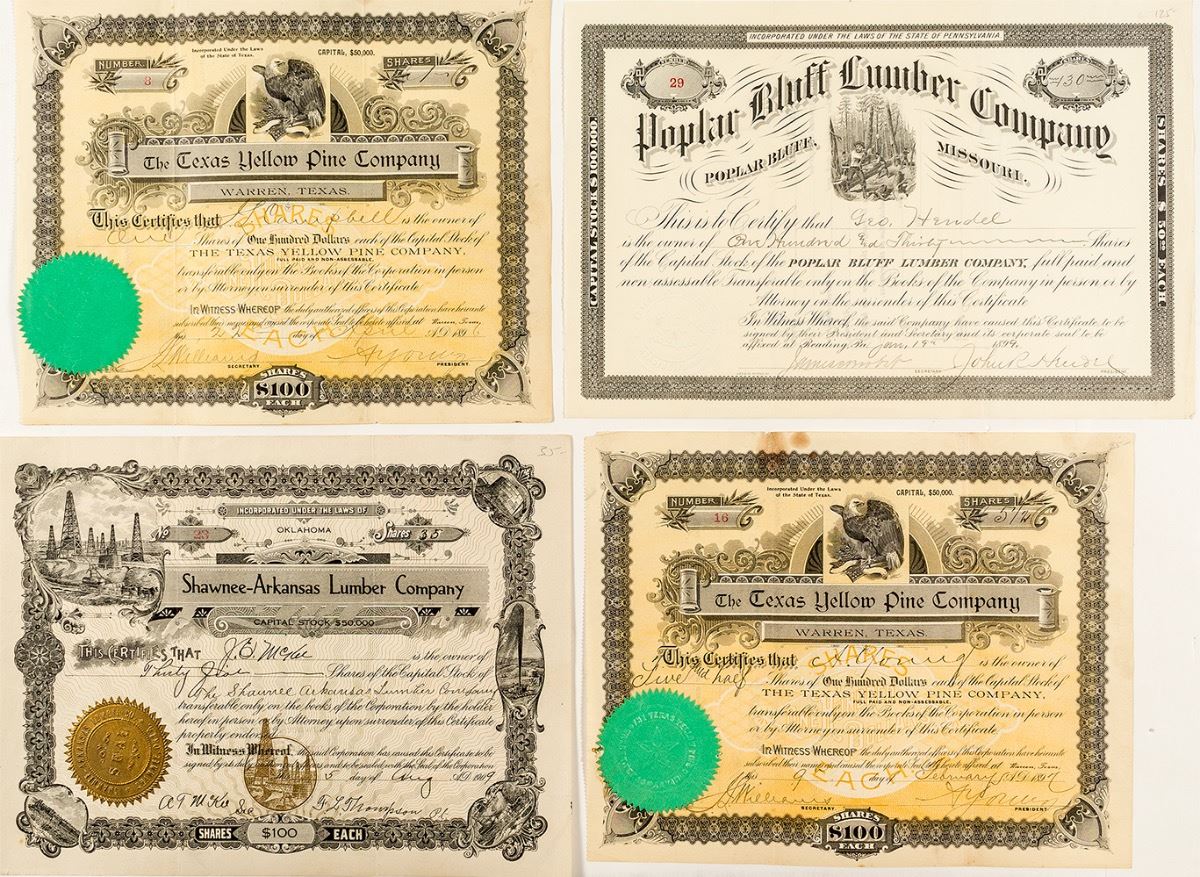 Incorporated Under the Laws
of the State of Texas.
CAPITAL, $50,000.
NUMBER
8
SHARES
1
The Texas Yellow Pine Company
WARREN, TEXAS.
This Certifies that Campbell is the owner of
One Shares of One Hundred Dollars each of the Capital Stock of
THE TEXAS YELLOW PINE COMPANY,
FULL PAID AND NON-ASSESSABLE.
transferable only on the Books of the Corporation in person
or by Attorney on surrender of this Certificate
IN WITNESS WHEREOF the duly authorized officers of this Corporation have hereunto
subscribed their names and caused the corporate Seal to be hereto affixed at Warren, Texas,
this 22 day of A.D. 189
SHARES
EACH
J. Williams
SECRETARY
PRESIDENT.
SHARES
$100
EACH
125-
INCORPORATED UNDER THE LAWS OF THE STATE OF PENNSYLVANIA.
NUMBER
29
SHARES
130
Poplar Bluff Lumber Company
POPLAR BLUFF, MISSOURI.
CAPITAL STOCK $100,000.
SHARES $50 EACH.
This is to Certify that Geo. Hendel
is the owner of One Hundred and Thirty Shares
of the Capital Stock of the POPLAR BLUFF LUMBER COMPANY, full paid and
non-assessable Transferable only on the Books of the Company in person or by
Attorney on the surrender of this Certificate
In Witness Whereof, the said Company have caused this Certificate to be
signed by their President & Secretary and its corporate seal to be
affixed at Reading, Pa. Jan. 19th 1894.
SECRETARY
John R. Hendel
PRESIDENT
35-
INCORPORATED UNDER THE LAWS OF
OKLAHOMA
No 23
Shares 35
Shawnee-Arkansas Lumber Company
CAPITAL STOCK $50,000
THIS CERTIFIES THAT J. B. McKee is the owner of
Thirty five Shares of the Capital Stock of
The Shawnee Arkansas Lumber Company
transferable only on the books of the Corporation by the holder
hereof in person or by Attorney upon surrender of this Certificate
properly endorsed
In Witness Whereof, the said Corporation has caused this Certificate to be
signed by its duly authorized officers and to be sealed with the Seal of the Corporation
this 5 day of Aug A.D. 1909
SEAL
A T McKee Sec
Thompson Pt.
SHARES $100 EACH
35-
Incorporated Under the Laws
of the State of Texas.
CAPITAL, $50,000.
NUMBER
16
SHARES
5 1/2
The Texas Yellow Pine Company
WARREN, TEXAS.
This Certifies that Young is the owner of
Five and half Shares of One Hundred Dollars each of the Capital Stock of
THE TEXAS YELLOW PINE COMPANY,
FULL PAID AND NON-ASSESSABLE.
transferable only on the Books of the Corporation in person
or by Attorney on surrender of this Certificate
IN WITNESS WHEREOF the duly authorized officers of this Corporation have hereunto
subscribed their names and caused the corporate Seal to be hereto affixed at Warren, Texas,
this 9 day of February A.D. 1897
SHARES
EACH
J. Williams
SECRETARY
PRESIDENT.
SHARES
$100
EACH